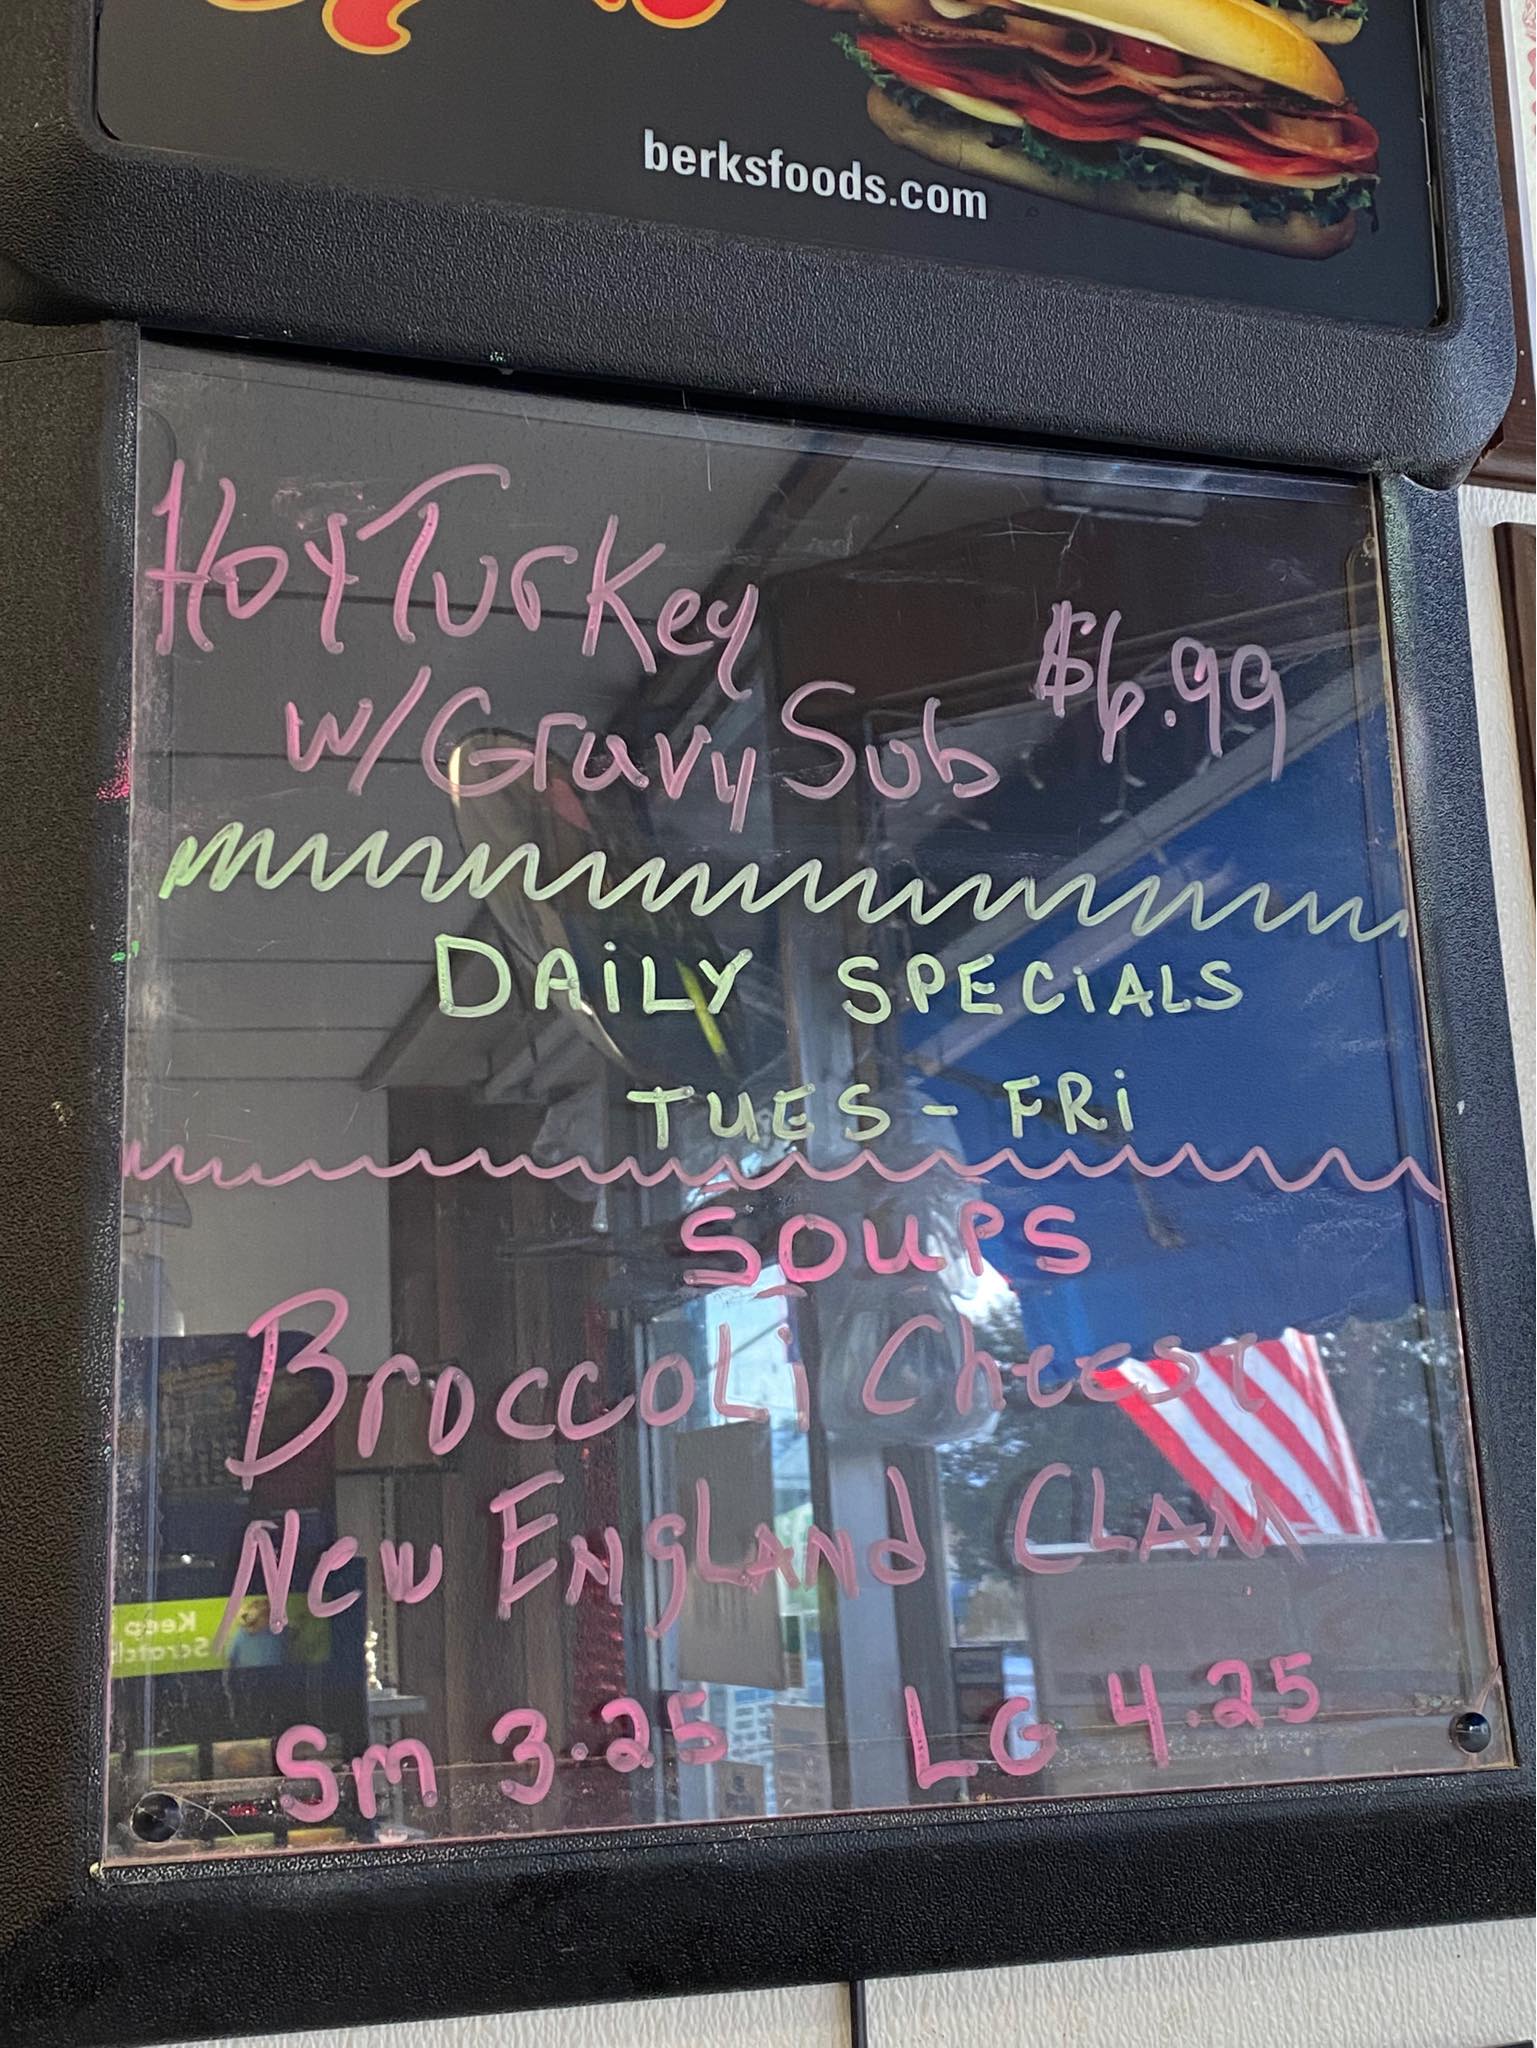 berksfoods.com
Hot Turkey
w/Gravy Sub $6.99
DAiLY SPECiALS
TUES - FRi
SOUPS
Broccoli Cheese
New England CLAM
Sm 3.25 LG 4.25
Keep
Scratch